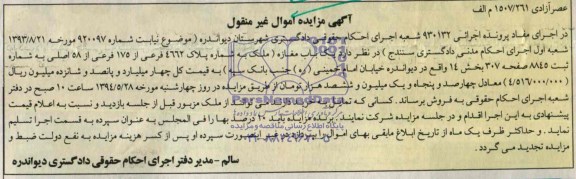 عصر آزادی ۱۵۰۷/۲۶۱ م الف
آگهی مزایده اموال غیر منقول
در اجرای مفاد پرونده اجرائی ۹۳۰۱۳۲ شعبه اجرای احکام حقوقی دادگستری شهرستان دیواندره (موضوع نیابت شماره ۹۲۰۰۹۷ مورخه ۱۳۹۳/۸/۲۱
شعبه اول اجرای احکام مدنی دادگستری سنندج) در نظر دارد یک باب مغازه (ملک به شماره پلاک ۴۶۶۲ فرعی از ۱۷۵ فرعی از ۵۸ اصلی به شماره
ثبت ۸۸۴۵ صفحه ۳۰۷ بخش ۱۴ واقع در دیواندره خیابان امام خمینی (ره) جنب بانک سپه) به قیمت کل چهار میلیارد و پانصد و شانزده میلیون ریال
(۴/۵۱۶/۰۰۰/۰۰۰) معادل چهارصد و پنجاه و یک میلیون و ششصد هزار تومان از طریق مزایده در روز چهارشنبه مورخه ۱۳۹۴/۵/۲۸ ساعت ۱۰ صبح در دفتر
شعبه اجرای احکام حقوقی به فروش برساند. کسانی که تمایل به از ملک مزبور قبل از جلسه بازدید و نسبت به اعلام قیمت
پیشنهادی به این اجرا اقدام و در جلسه مزایده شرکت نمایند. برنده مزایده باید ۱۰ درصد بها را فی المجلس به عنوان سپرده به قسمت اجرا تسلیم
نماید. و حداکثر ظرف یک ماه از تاریخ ابلاغ مابقی بهای اموال را بپردازد در غیر اینصورت سپرده او پس از کسر هزینه مزایده به نفع دولت ضبط و
مزایده تجدید می گردد.
سالم - مدیر دفتر اجرای احکام حقوقی دادگستری دیواندره
پایگاه اطلاع رسانی مناقصه و مزایده